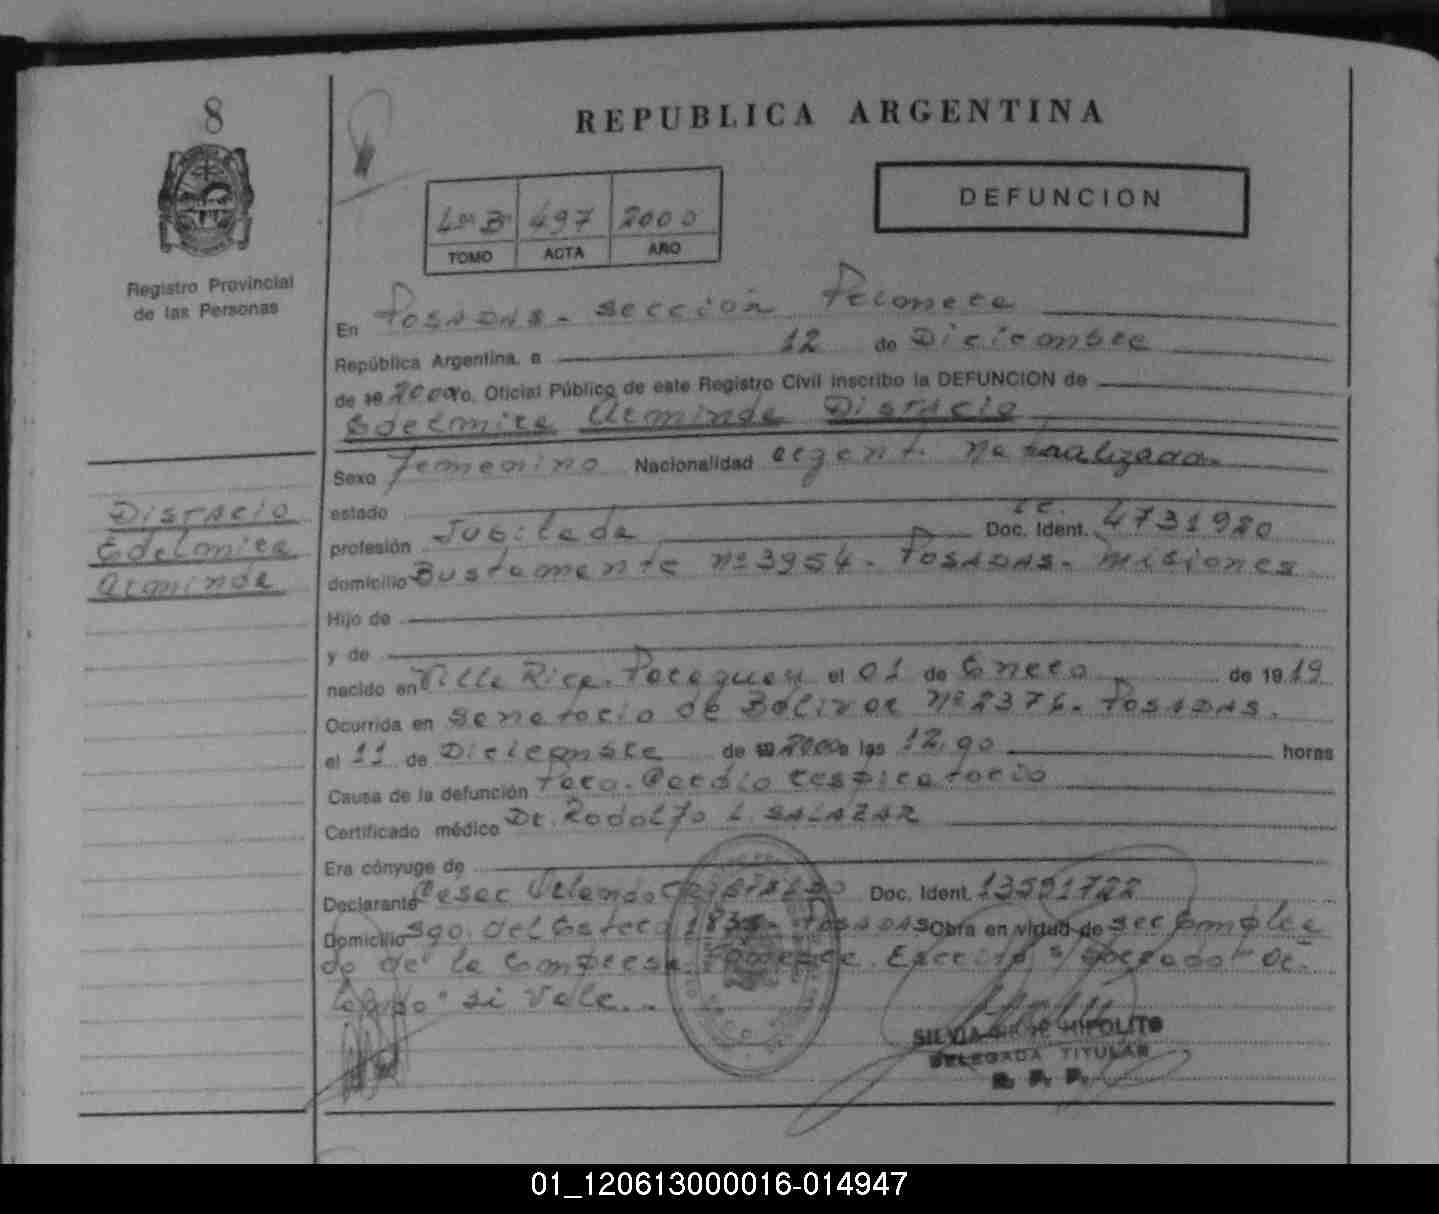 8
REPUBLICA ARGENTINA
DEFUNCION
497 2000
TOMO ACTA AÑO
Registro Provincial
de las Personas
En Posadas - Sección
República Argentina, a 12 de Diciembre
de 19 2000 yo, Oficial Público de este Registro Civil inscribo la DEFUNCION de
Edelmira Arminda Disracio
Sexo Femenino Nacionalidad argent. Naturalizada.
Disracio
Edelmira
Arminda
estado
profesión Jubilada Doc. Ident. 4731920
domicilio Bustamante Nº 3954 - Posadas - Misiones
Hijo de
y de
nacido en Villa Rica - Paraguay el 01 de Enero de 19 19
Ocurrida en Senatorio de Bolivar Nº 2376 - Posadas.
el 11 de Diciembre de 19 2000 a las 12,90 horas
Causa de la defunción Paro Cardio respiratorio
Certificado médico Dr. Rodolfo L. SALAZAR
Era cónyuge de
Declarante Doc. Ident. 13591722
Domicilio Sgo. del Estero 1835 - Posadas Obra en virtud de ser emplea
do de la Empresa
si Vale..
SILVIA HIPOLITO
DELEGADA TITULAR
R. P. P.
01_120613000016-014947